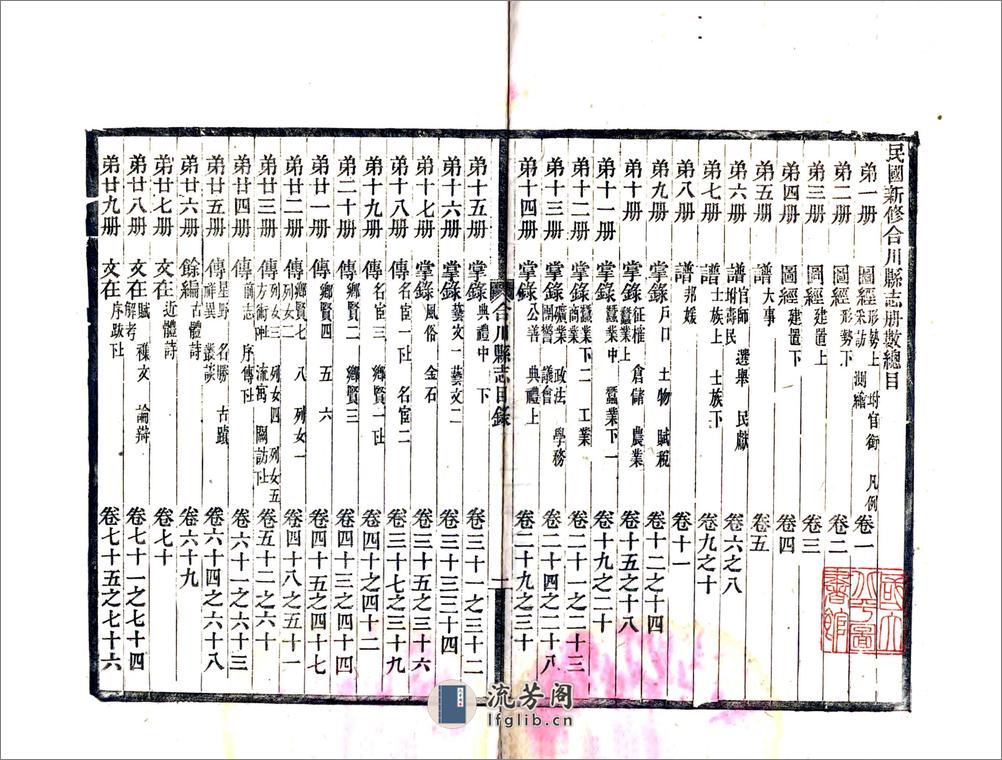 民國新修合川縣志册數總目
弟一册 圖經形勢上 坿官銜 凡例 采訪 測繪 卷一
弟二册 圖經形勢下 卷二
弟三册 圖經建置上 卷三
弟四册 圖經建置下 卷四
弟五册 譜大事 卷五
弟六册 譜官師 選舉 民獻 坿壽民 卷六之八
弟七册 譜士族上 士族下 卷九之十
弟八册 譜邦媛 卷十一
弟九册 掌錄戶口 土物 賦稅 卷十二之十四
弟十册 掌錄征榷 倉儲 農業 蠶業上 卷十五之十八
弟十一册 掌錄蠶業中 蠶業下一 卷十九之二十
弟十二册 掌錄蠶業下二 工業 商業 卷二十一之二十三
弟十三册 掌錄礦業 政法 學務 團警 議會 卷二十四之二十八
弟十四册 掌錄公善 典禮上 卷二十九之三十
合川縣志目錄
一
弟十五册 掌錄典禮中 下 卷三十一之三十二
弟十六册 掌錄藝文一 藝文二 卷三十三三十四
弟十七册 掌錄風俗 金石 卷三十五之三十六
弟十八册 傳名宦一 名宦二 卷三十七之三十九
弟十九册 傳名宦三 鄉賢一 卷四十之四十二
弟二十册 傳鄉賢二 鄉賢三 卷四十三四十四
弟廿一册 傳鄉賢四 五 六 卷四十五之四十七
弟廿二册 傳鄉賢七 八 列女一 列女二 卷四十八之五十一
弟廿三册 傳列女三 列女四 列女五 方術 流寓 卷五十二之六十
弟廿四册 傳前志 序傳 卷六十一之六十三
弟廿五册 傳星野 名勝 古蹟 祥異 叢談 卷六十四之六十八
弟廿六册 餘編古體詩 卷六十九
弟廿七册 文在近體詩 卷七十
弟廿八册 文在賦 襍文 論辯 解考 卷七十一之七十四
弟廿九册 文在序跋 卷七十五之七十六
流芳阁
lfglib.cn